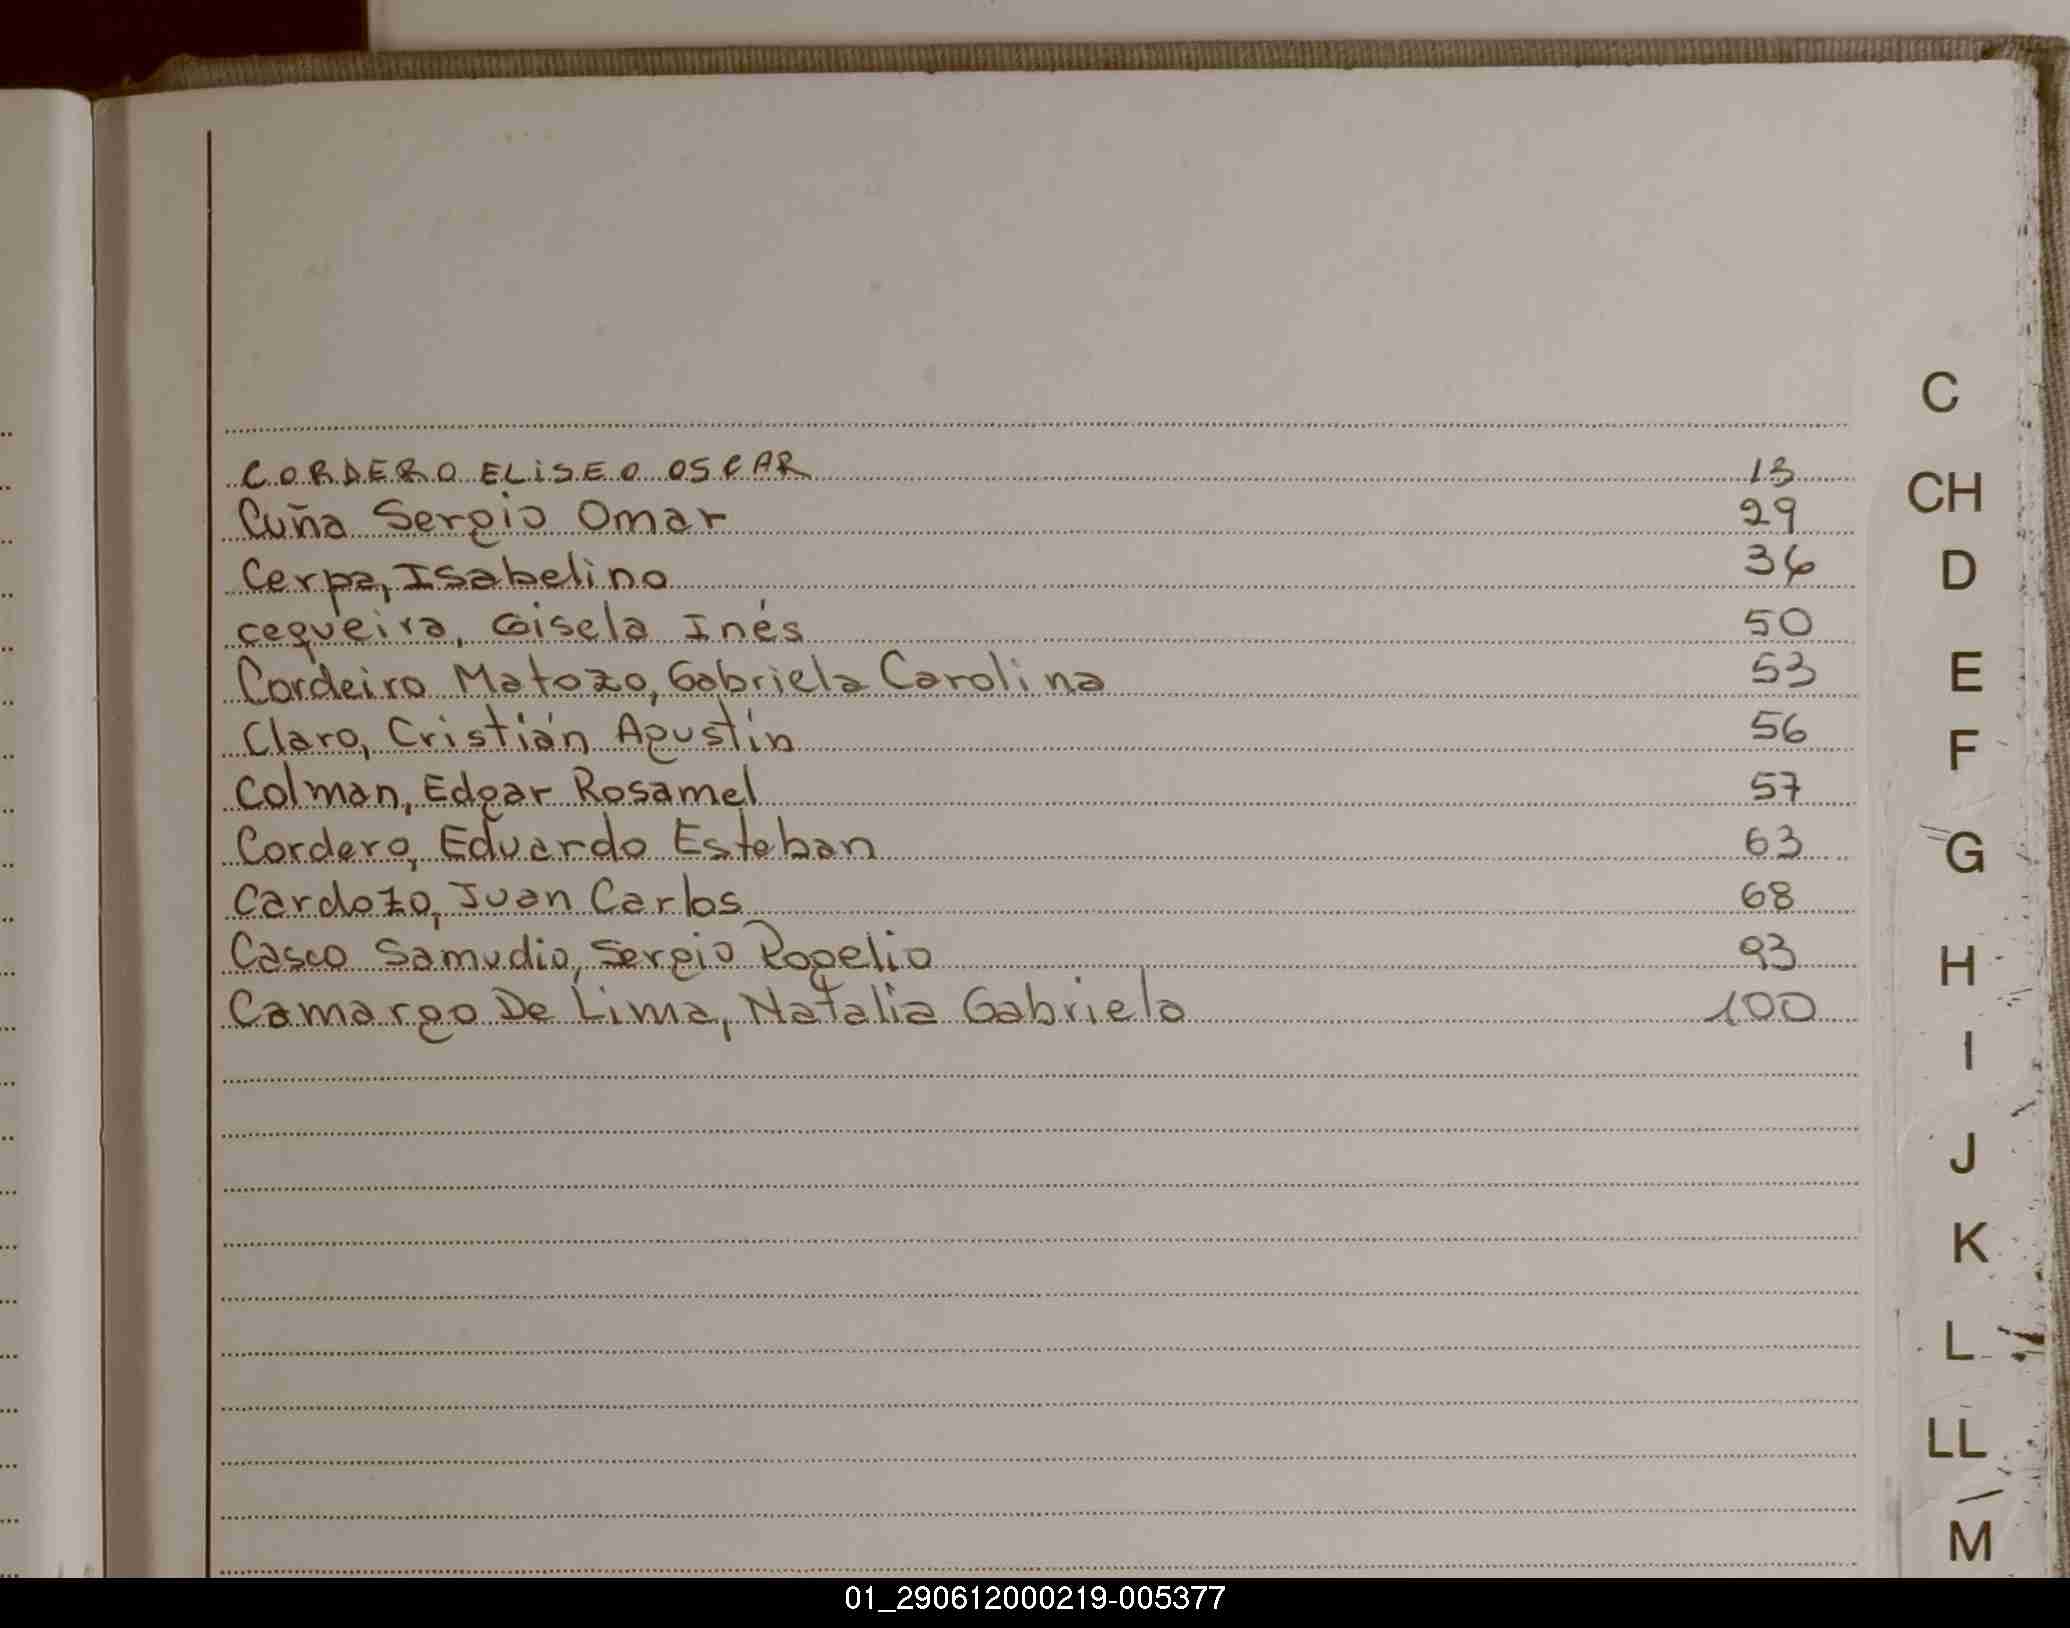 CORDERO ELISEO OSCAR 13
Cuña Sergio Omar 29
Cerpa, Isabelino 36
cequeira, Gisela Inés 50
Cordeiro Matozo, Gabriela Carolina 53
Claro, Cristián Agustín 56
Colman, Edgar Rosamel 57
Cordero, Eduardo Esteban 63
Cardozo, Juan Carlos 68
Casco Samudio, Sergio Rogelio 93
Camargo De Lima, Natalia Gabriela 100
C
CH
D
E
F
G
H
I
J
K
L
LL
M
01_290612000219-005377